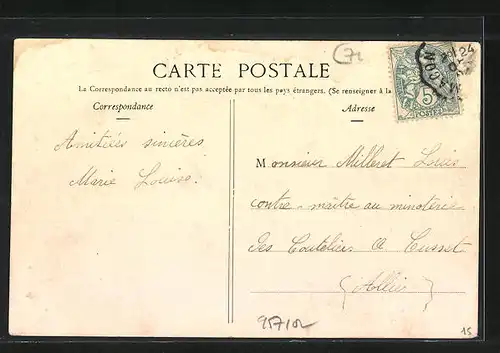 71
CARTE POSTALE
La Correspondance au recto n'est pas acceptée par tous les pays étrangers. (Se renseigner à la
Correspondance
Adresse
5
POSTES
MACON
24
Amitiés sincères
Marie Louise.
Monsieur Milleret Louis
contre-maître au minoterie
des Couteliers a Cusset
(Allier)
957102
15